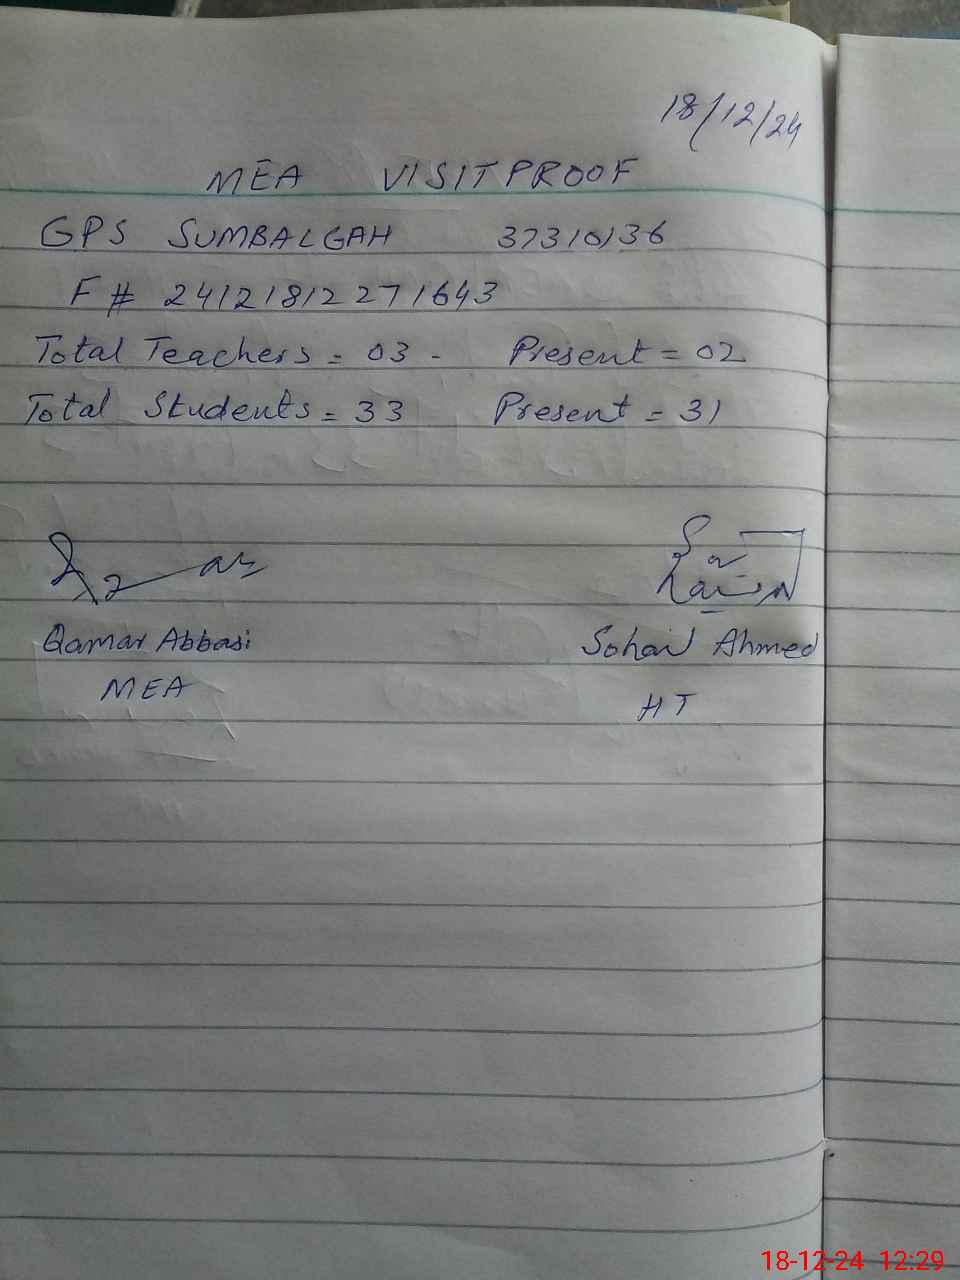 18/12/24
MEA VISIT PROOF
GPS SUMBALGAH 37310136
F# 24121812271643
Total Teachers = 03 - Present = 02
Total Students = 33 Present = 31
Qamar Abbasi Sohail Ahmed
MEA HT
18-12-24 12:29